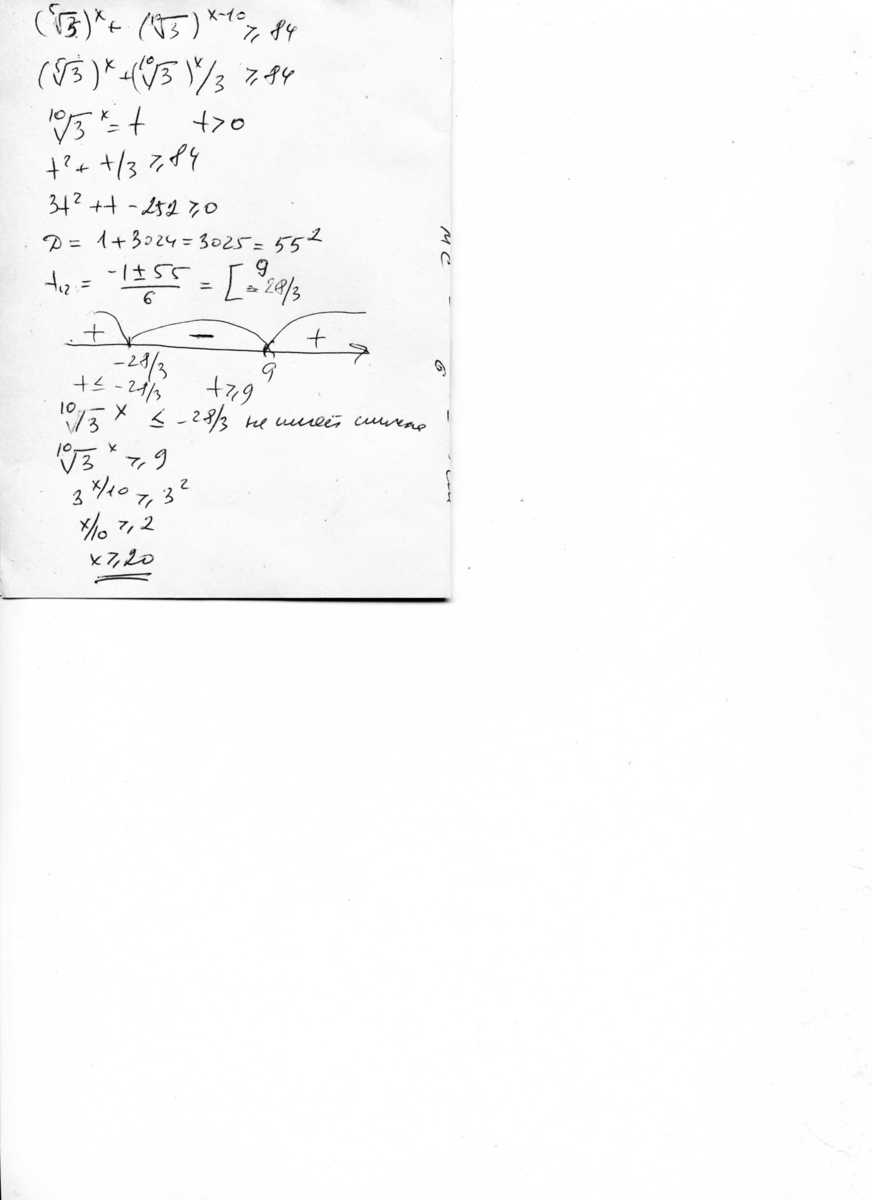 (⁵√3)ˣ + (¹⁰√3)ˣ⁻¹⁰ ≥ 84
(⁵√3)ˣ + (¹⁰√3)ˣ/3 ≥ 84
¹⁰√3ˣ = t t > 0
t² + t/3 ≥ 84
3t² + t - 252 ≥ 0
D = 1 + 3024 = 3025 = 55²
t₁,₂ = (-1 ± 55)/6 = [ 9 -28/3
+ − +
-28/3 9
t ≤ -28/3 t ≥ 9
¹⁰√3ˣ ≤ -28/3 не имеет смысла
¹⁰√3ˣ ≥ 9
3ˣ/¹⁰ ≥ 3²
x/10 ≥ 2
x ≥ 20